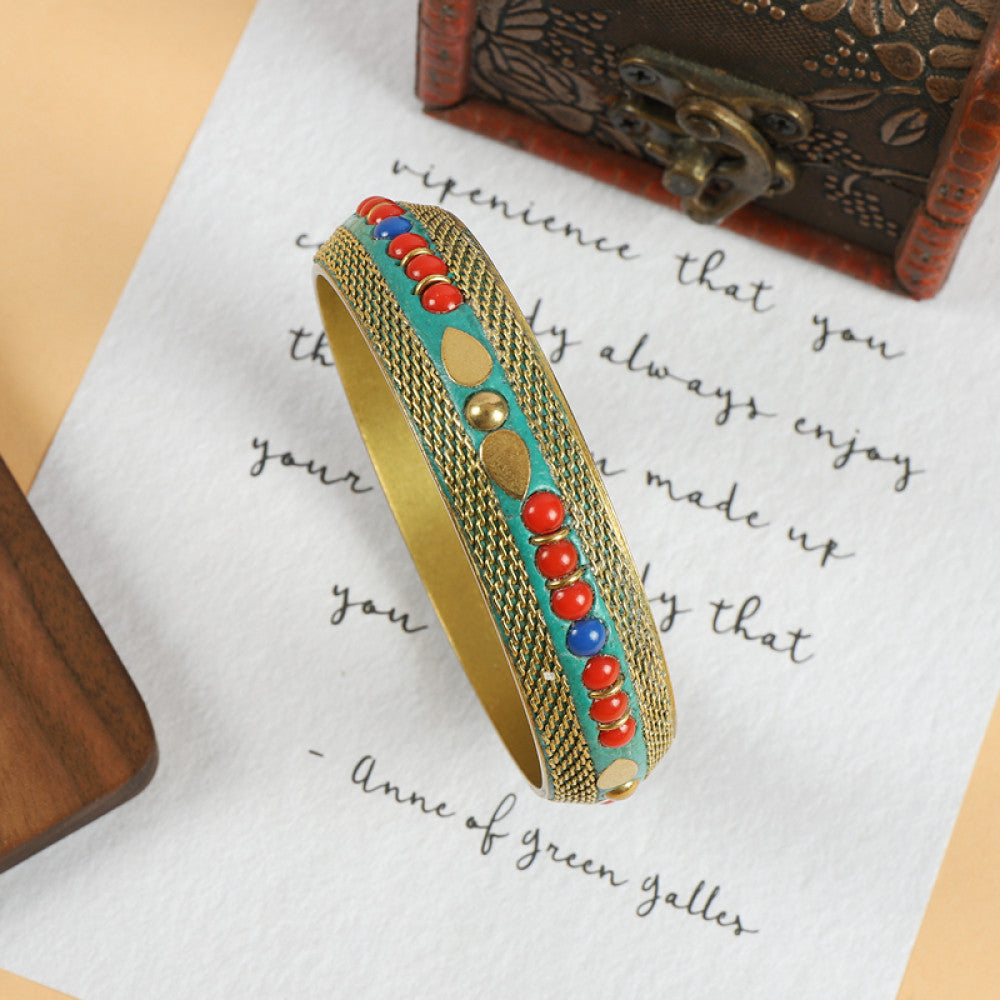 vipenience that you
th dy always enjoy
your made up
you ly that
- Anne of green galles